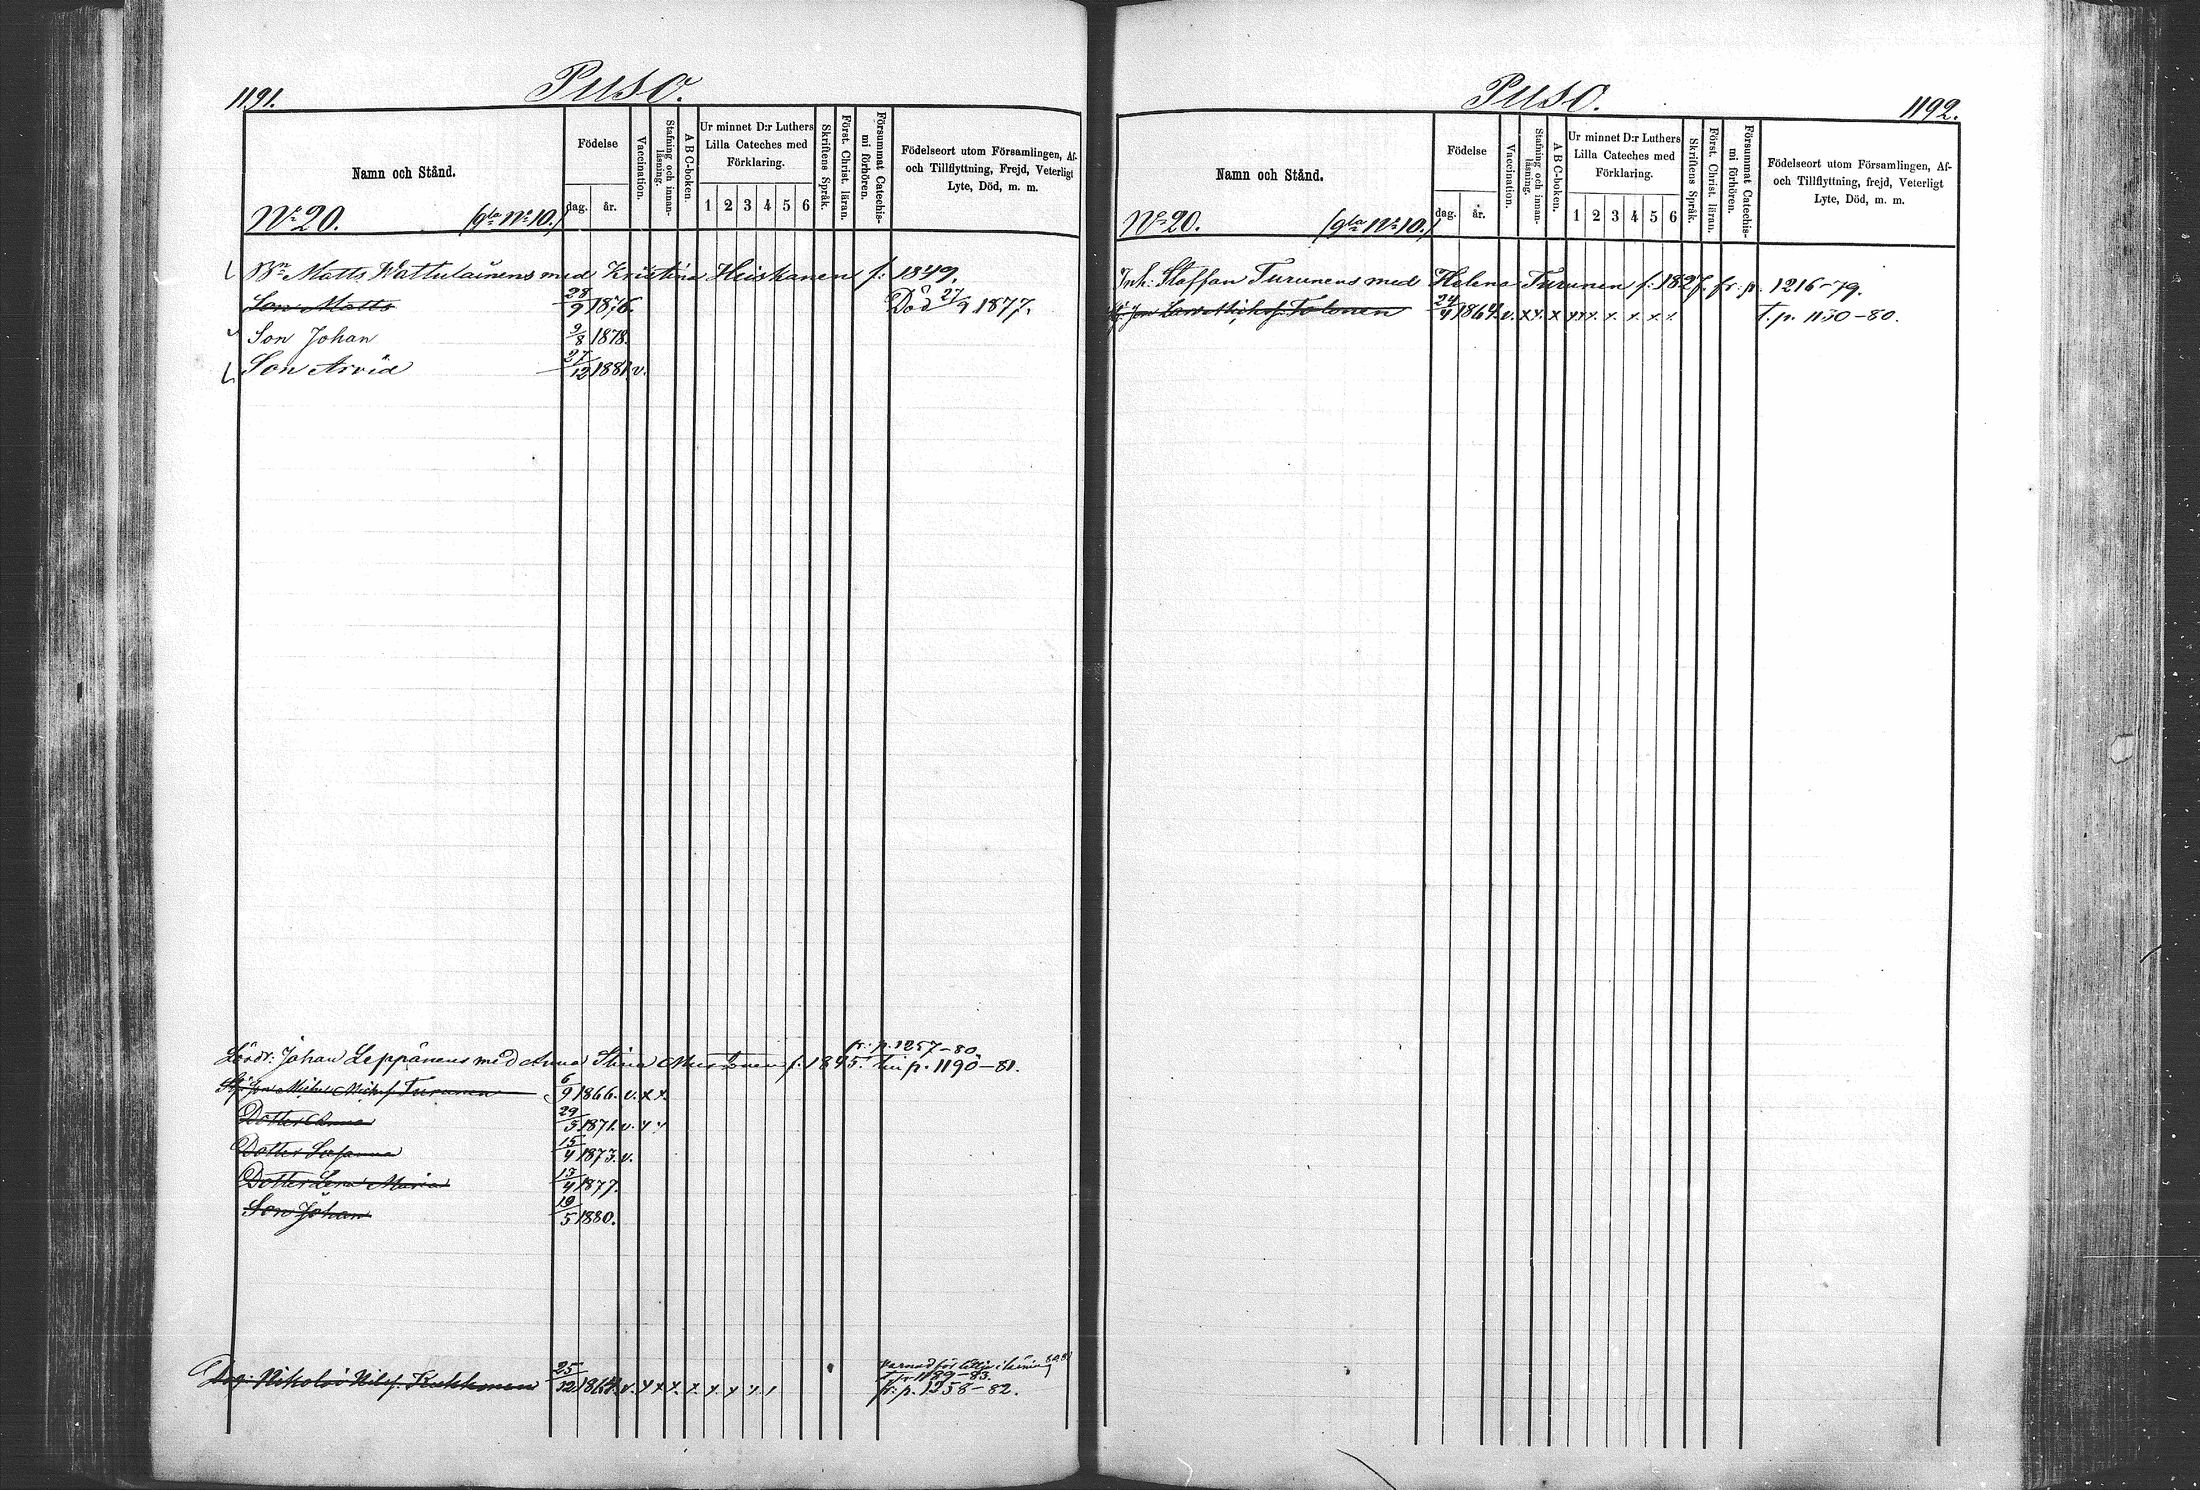 1191.
Puso.
Namn och Stånd.
Födelse
dag. år.
Vaccination.
Stafning och innanläsning.
ABC-boken.
Ur minnet D:r Luthers Lilla Cateches med Förklaring.
1 2 3 4 5 6
Skriftens Språk.
Först. Christ. läran.
Försummat Catechismi förhören.
Födelseort utom Församlingen, Af- och Tillflyttning, Frejd, Veterligt Lyte, Död, m. m.
No 20. (gla No 10.)
Bn Matts Wattulainens med Kristina Heiskanen f: 1849.
Son Matts 28/9 1876. Död 27/9 1877.
Son Johan 9/8 1878.
Son Arvid 27/12 1881. v.
fr: p. 1257-80.
Johan Leppänens med Anna Stina f: 1845. till p. 1190-81.
Turunen 6/9 1866. v. x x.
Dotter Anna 29/5 1871. v. x x
Dotter Susanna 15/4 1873. v.
Dotter Lena Maria 13/4 1877.
Son Johan 19/5 1880.
t. p. 1189-83.
Nikolai Nilsf. Kukkonen 25/12 1864. v. x x x. x. x x x. fr: p. 1258-82.
Puso.
1192.
Namn och Stånd.
Födelse
dag. år.
Vaccination.
Stafning och innanläsning.
ABC-boken.
Ur minnet D:r Luthers Lilla Cateches med Förklaring.
1 2 3 4 5 6
Skriftens Språk.
Först. Christ. läran.
Försummat Catechismi förhören.
Födelseort utom Församlingen, Af- och Tillflyttning, frejd, Veterligt Lyte, Död, m. m.
No 20. (gla No 10.)
Inh: Staffan Turunens med Helena Turunen f: 1827. fr: p. 1216-79.
Lars Tolonen 24/4 1864. v. x x. x x x x. x. x. x. x. t. p. 1150-80.